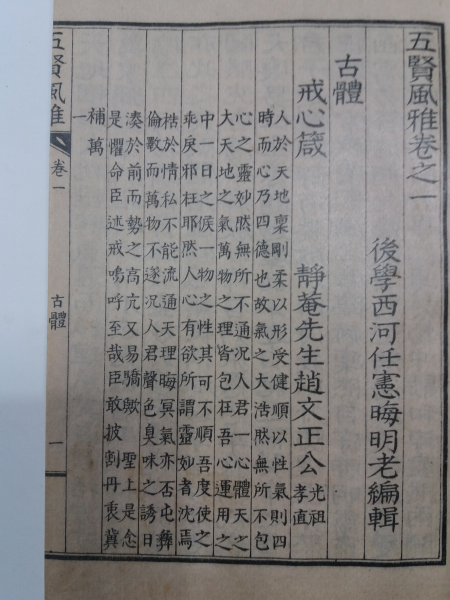 五賢風雅卷之一
後學西河任憲晦明老編輯
古體
戒心箴 靜菴先生趙文正公 光祖
孝直
人於天地稟剛柔以形受健順以性氣則四
時而心乃四德也故氣之大浩然無所不包
心之靈妙然無所不通況人君一心體天之
大天地之氣萬物之理皆包在吾心運用之
中一日之候一物之性其可不順吾度使之
乖戾邪枉耶然人心有欲所謂靈妙者沈焉
梏於情私不能流通天理晦冥氣亦否屯彝
倫斁而萬物不遂況人君聲色臭味之誘日
湊於前而勢之高亢又易驕歟 聖上是念
是懼命臣述戒嗚呼至哉臣敢披割丹衷冀
補萬
一
五賢風雅 卷一 古體 一